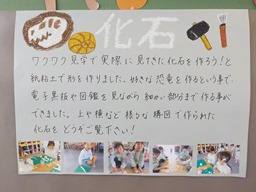 化石
ワクワク見学で実際に見てきた化石を作ろう!と
紙粘土で形を作りました。好きな恐竜を作るという事で、
電子黒板や図鑑を見ながら細かい部分まで作る事が
できました。上や横など様々な構図で作られた
化石をどうぞご覧下さい!